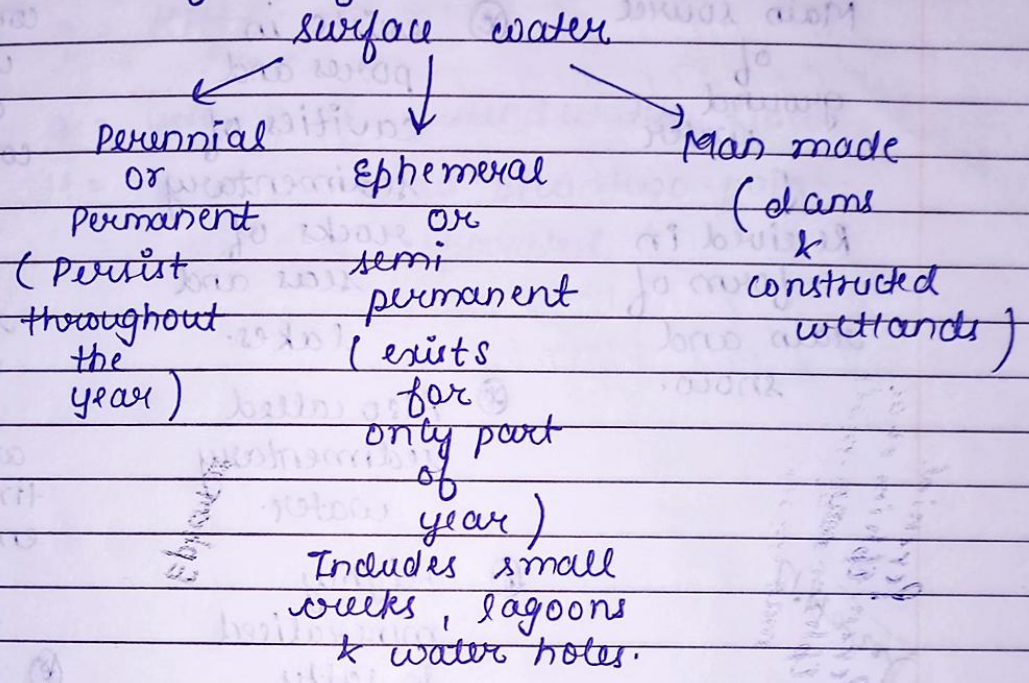 surface water
Perennial
or
Permanent
(Persist
throughout
the
year)
Ephemeral
or
semi
permanent
(exists
for
only part
of
year)
Includes small
creeks, lagoons
& water holes.
Man made
(dams
&
constructed
wetlands)